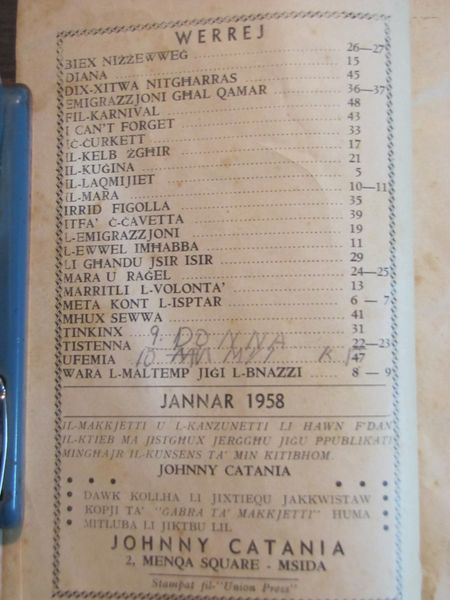 WERREJ
BIEX NIŻŻEWWEĠ ........ 26—27
DIANA ........ 15
DIX-XITWA NITGĦARRAS ........ 45
EMIGRAZZJONI GĦAL QAMAR ........ 36—37
FIL-KARNIVAL ........ 48
I CAN'T FORGET ........ 43
IĊ-ĊURKETT ........ 33
IL-KELB ŻGĦIR ........ 17
IL-KUĠINA ........ 21
IL-LAQMIJIET ........ 5
IL-MARA ........ 10—11
IRRID FIGOLLA ........ 35
ITFA' Ċ-ĊAVETTA ........ 39
L-EMIGRAZZJONI ........ 19
L-EWWEL IMĦABBA ........ 11
LI GĦANDU JSIR ISIR ........ 29
MARA U RAĠEL ........ 24—25
MARRITLI L-VOLONTA' ........ 13
META KONT L-ISPTAR ........ 6 — 7
MHUX SEWWA ........ 41
TINKINX ........ 31
9. DONNA
TISTENNA ........ 22—23
10
UFEMIA ........ 47
WARA L-MALTEMP JIĠI L-BNAZZI ........ 8 — 9
JANNAR 1958
IL-MAKKJETTI U L-KANZUNETTI LI HAWN F'DAN
IL-KTIEB MA JISTGĦUX JERGGĦU JIĠU PPUBLIKATI
MINGĦAJR IL-KUNSENS TA' MIN KITIBHOM.
JOHNNY CATANIA
DAWK KOLLHA LI JIXTIEQU JAKKWISTAW
KOPJI TA' "ĠABRA TA' MAKKJETTI" HUMA
MITLUBA LI JIKTBU LIL
JOHNNY CATANIA
2, MENQA SQUARE - MSIDA
Stampat fil-"Union Press"